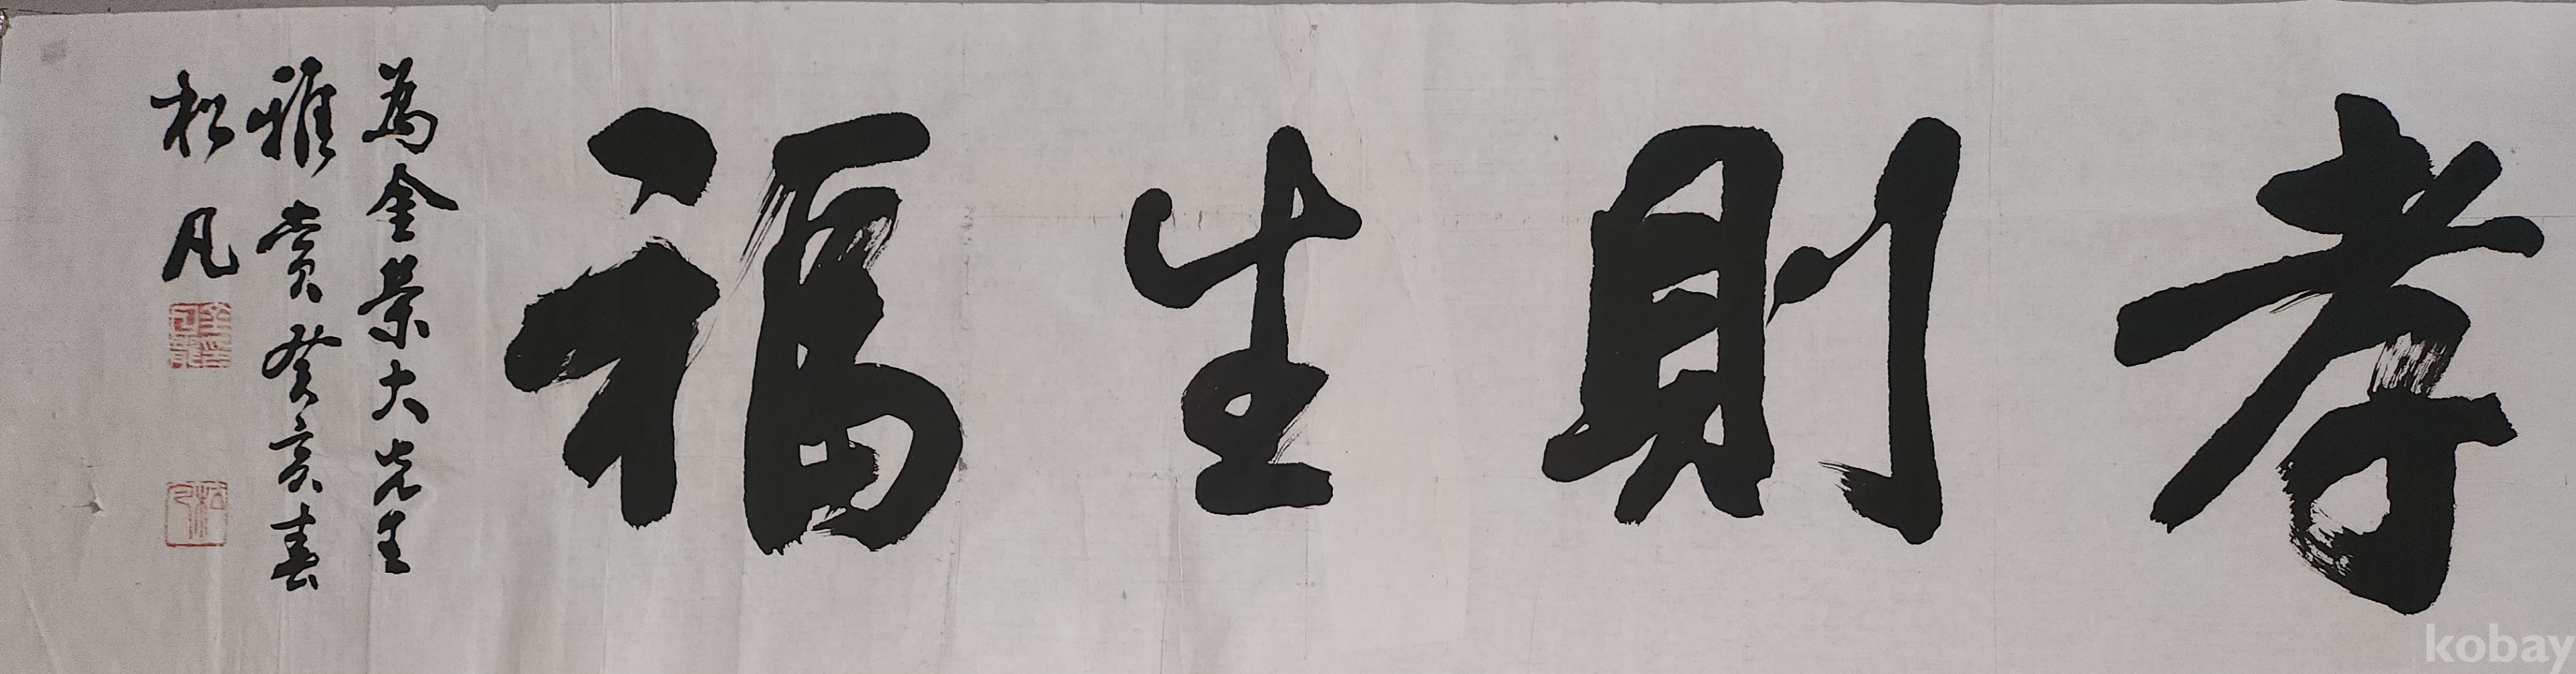 孝則生福
為金榮大先生
雅賞癸亥春
松凡
kobay